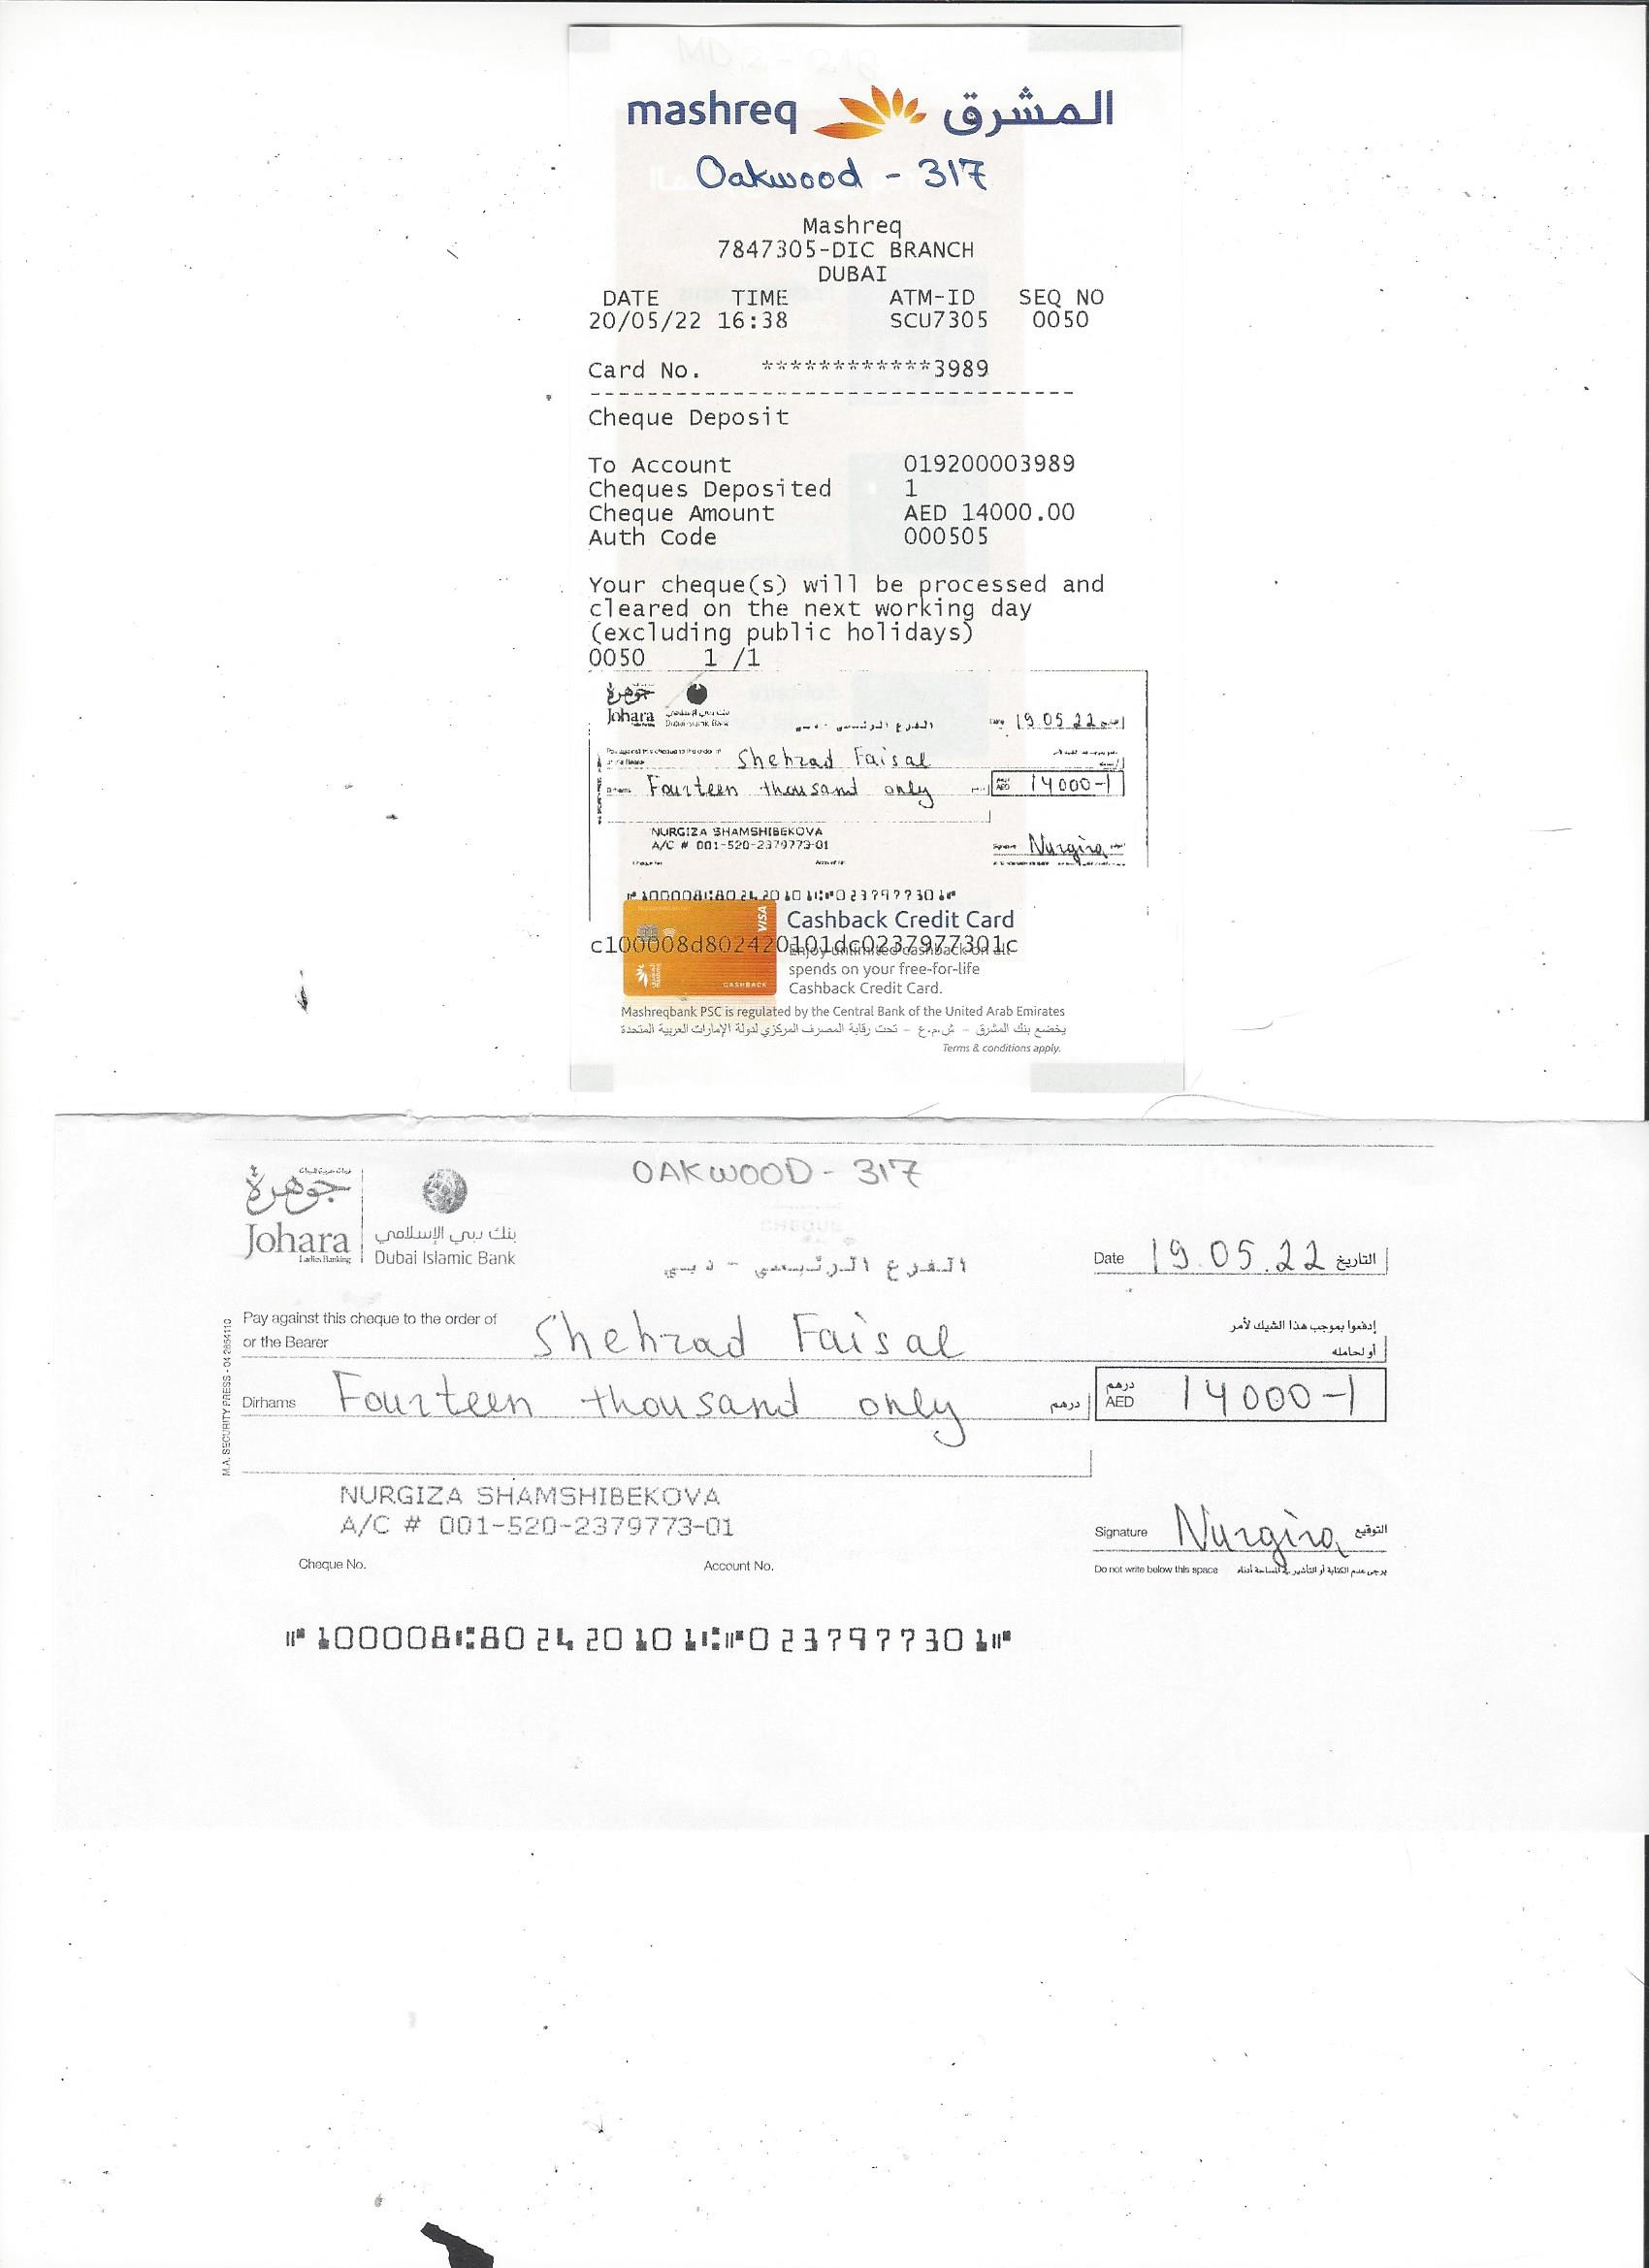 mashreq المشرق
Oakwood - 317
Mashreq
7847305-DIC BRANCH
DUBAI
DATE TIME ATM-ID SEQ NO
20/05/22 16:38 SCU7305 0050
Card No. ************3989
--------------------------------
Cheque Deposit
To Account 019200003989
Cheques Deposited 1
Cheque Amount AED 14000.00
Auth Code 000505
Your cheque(s) will be processed and
cleared on the next working day
(excluding public holidays)
0050 1 /1
جوهرة
Johara
الفرع الرئيسي - دبي
Date 19.05.22
Pay against this cheque to the order of
or the Bearer
Shehzad Faisal
Dirhams Fourteen thousand only AED 14000-/
NURGIZA SHAMSHIBEKOVA
A/C # 001-520-2379773-01
Nurgiza
⑈100008⑆802420101⑆⑈0237977301⑈
Cashback Credit Card
c100008d802420101dc0237977301c
Enjoy unlimited cashback on all
spends on your free-for-life
Cashback Credit Card.
VISA
CASHBACK
Mashreqbank PSC is regulated by the Central Bank of the United Arab Emirates
يخضع بنك المشرق - ش.م.ع - تحت رقابة المصرف المركزي لدولة الإمارات العربية المتحدة
Terms & conditions apply.
OAKWOOD - 317
جوهرة
Johara
Ladies Banking
بنك دبي الإسلامي
Dubai Islamic Bank
الفرع الرئيسي - دبي
Date 19.05.22 التاريخ
Pay against this cheque to the order of
or the Bearer
Shehzad Faisal
إدفعوا بموجب هذا الشيك لأمر
أو لحامله
Dirhams Fourteen thousand only درهم
درهم
AED 14000-/
M.A. SECURITY PRESS - 04 2654110
NURGIZA SHAMSHIBEKOVA
A/C # 001-520-2379773-01
Signature Nurgiza التوقيع
Cheque No. Account No.
Do not write below this space يرجى عدم الكتابة أو التأشير في المساحة أدناه
⑈100008⑆802420101⑆⑈0237977301⑈